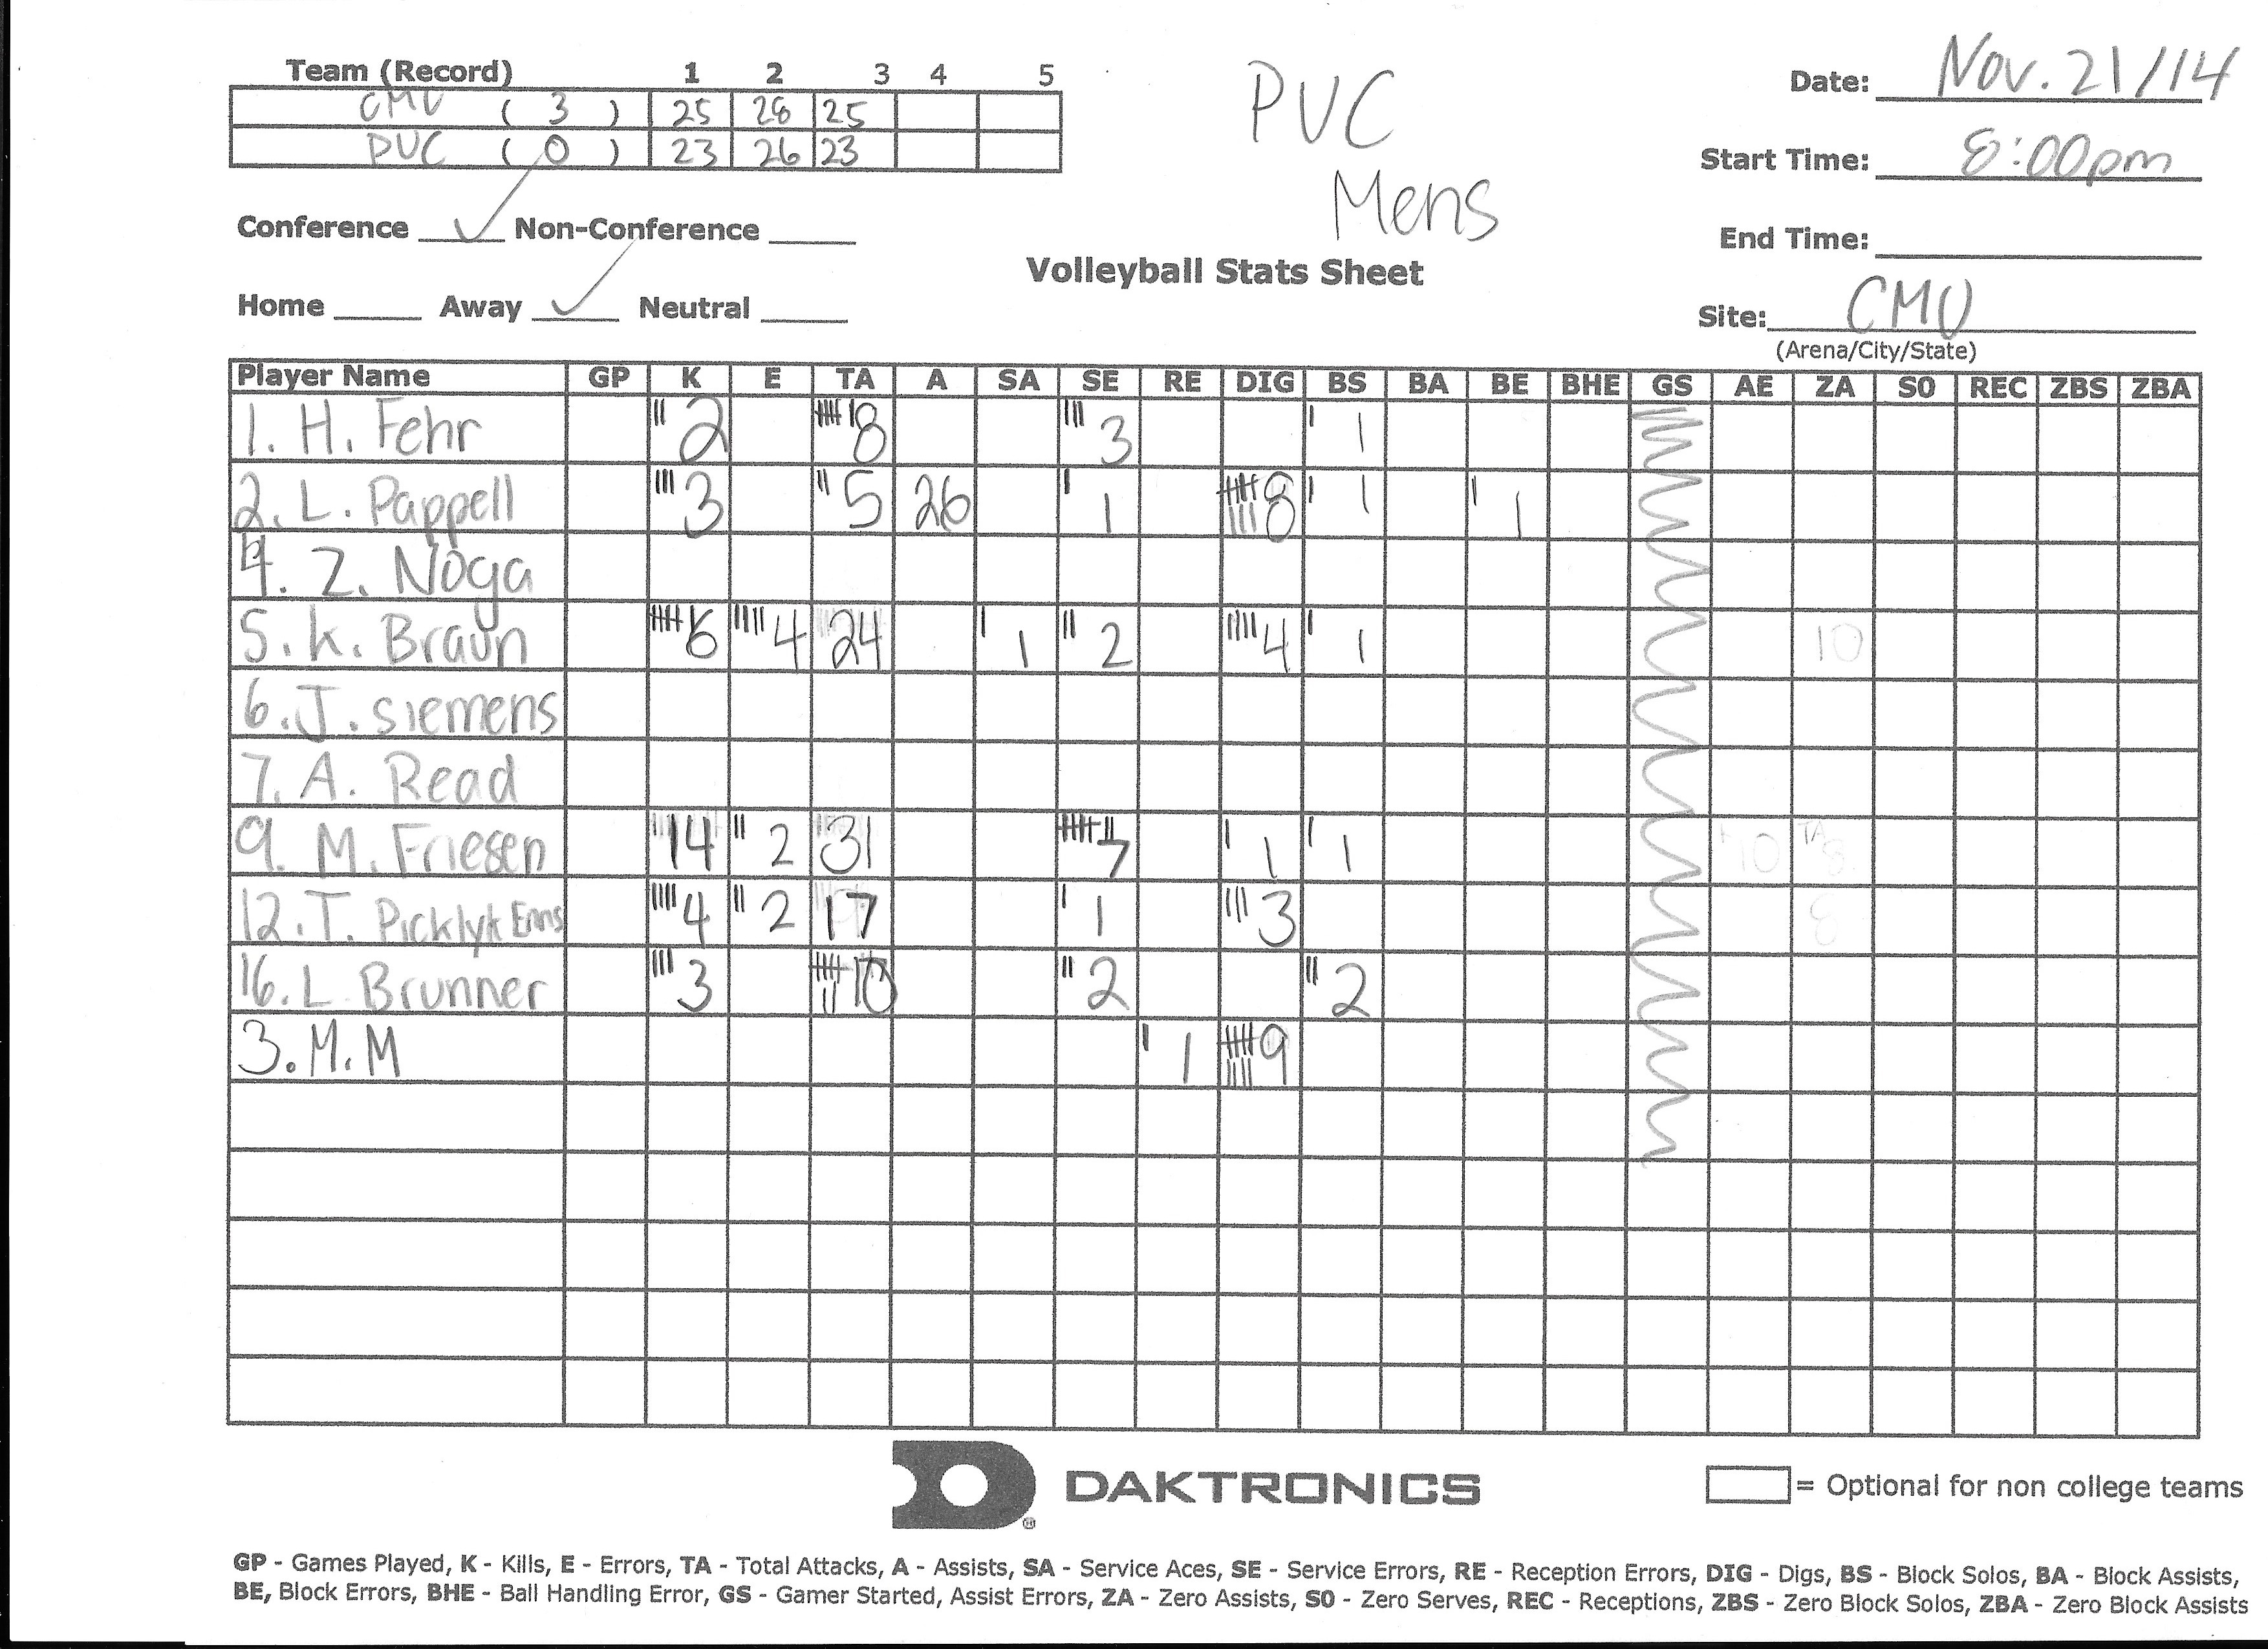 Team (Record) 1 2 3 4 5
CMU ( 3 ) 25 28 25
PVC ( 0 ) 23 26 23
PVC
Mens
Date: Nov. 21/14
Start Time: 8:00pm
Conference ✓ Non-Conference
End Time:
Volleyball Stats Sheet
Home Away ✓ Neutral
Site: CMU
(Arena/City/State)
Player Name GP K E TA A SA SE RE DIG BS BA BE BHE GS AE ZA S0 REC ZBS ZBA
1. H. Fehr 2 8 3 1
2. L. Pappell 3 5 26 1 8 1 1
4. Z. Noga
5. K. Braun 6 4 24 1 2 4 1 10
6. J. Siemens
7. A. Read
9. M. Friesen 14 2 31 7 1 1 10
12. T. Picklyk Enns 4 2 17 1 3 8
16. L. Brunner 3 10 2 2
3. M. M 1 9
DAKTRONICS
= Optional for non college teams
GP - Games Played, K - Kills, E - Errors, TA - Total Attacks, A - Assists, SA - Service Aces, SE - Service Errors, RE - Reception Errors, DIG - Digs, BS - Block Solos, BA - Block Assists,
BE, Block Errors, BHE - Ball Handling Error, GS - Gamer Started, Assist Errors, ZA - Zero Assists, S0 - Zero Serves, REC - Receptions, ZBS - Zero Block Solos, ZBA - Zero Block Assists